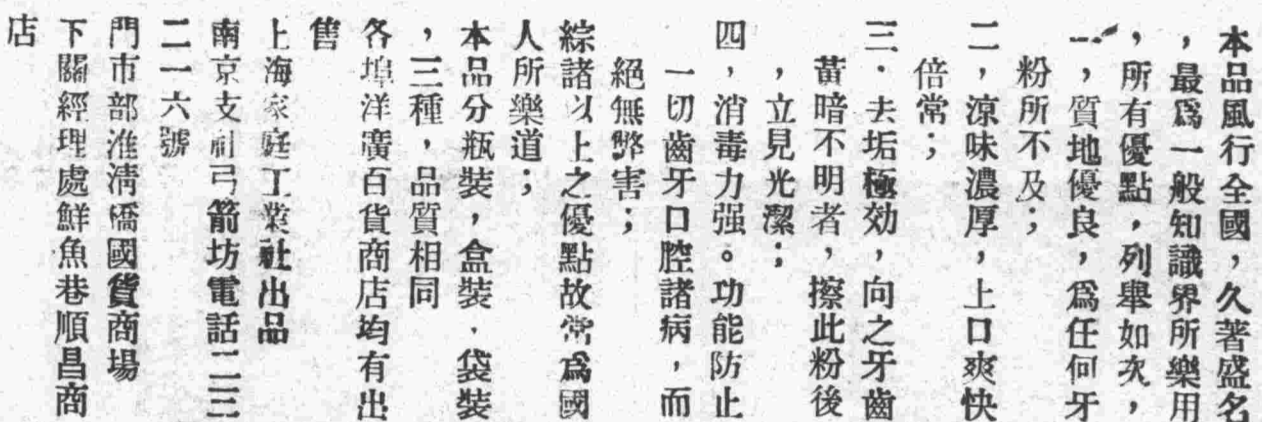 本品風行全國，久著盛名
，最爲一般知識界所樂用
，所有優點，列舉如次，
一，質地優良，爲任何牙
粉所不及；
二，涼味濃厚，上口爽快
倍常；
三．去垢極効，向之牙齒
黃暗不明者，擦此粉後
，立見光潔；
四，消毒力强。功能防止
一切齒牙口腔諸病，而
絕無弊害；
綜諸以上之優點故常爲國
人所樂道；
本品分瓶裝，盒裝．袋裝
，三種，品質相同
各埠洋廣百貨商店均有出
售
上海家庭工業社出品
南京支社弓箭坊電話二三
二一六號
門市部淮淸橋國貨商場
下關經理處鮮魚巷順昌商
店